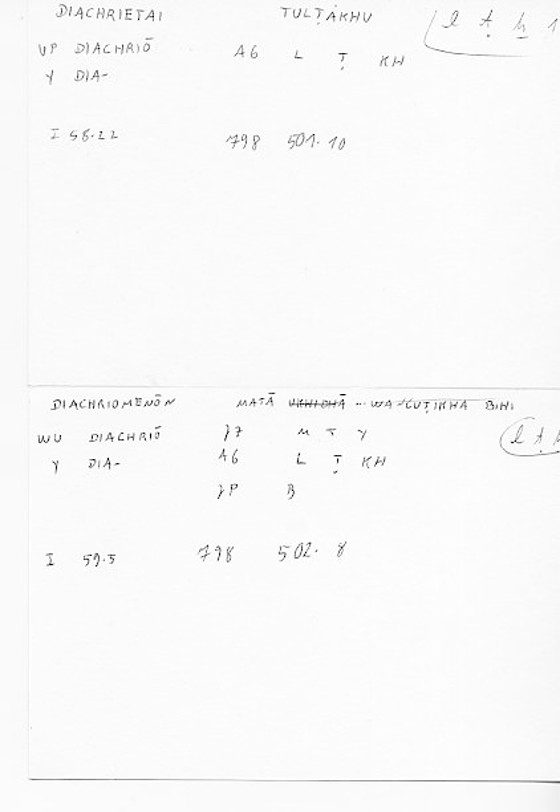 DIACHRIETAI TULṬAKHU
VP DIACHRIŌ A6 L Ṭ KH
Y DIA-
I 58.22 798 501. 10
DIACHRIOMENŌN MATĀ ... WA-LUṬIKHA BIHI
WU DIACHRIŌ J7 M T Y
Y DIA- A6 L Ṭ KH
JP B
I 59.5 798 502. 8